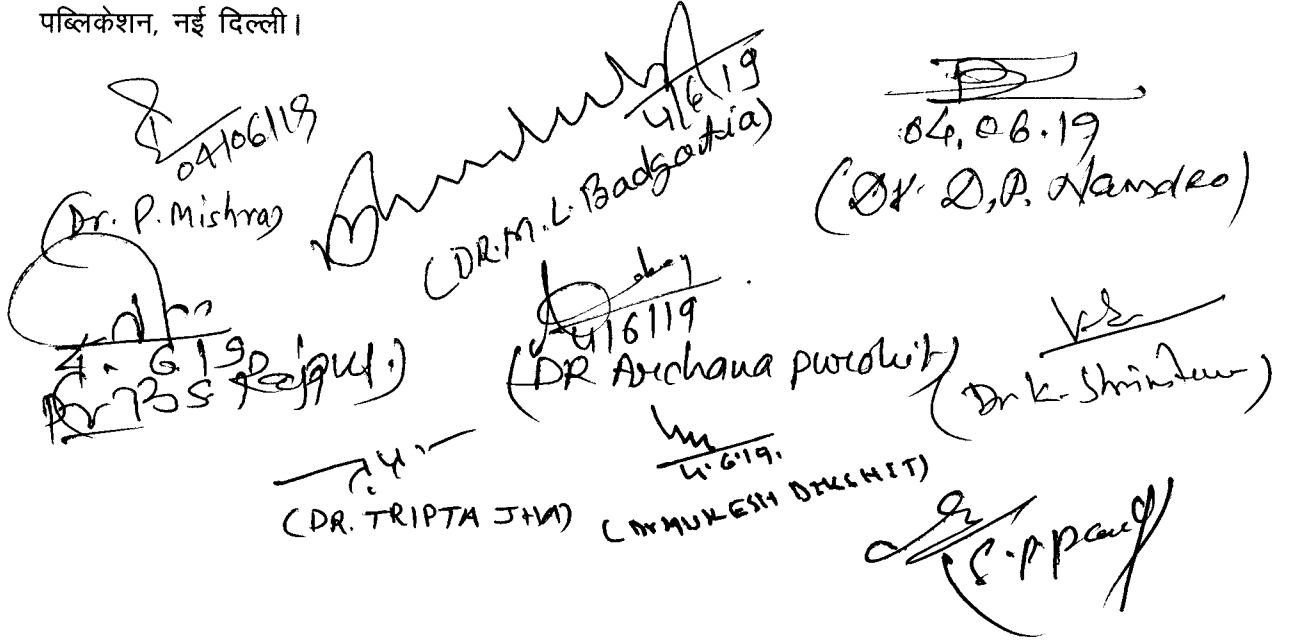 पब्लिकेशन, नई दिल्ली।
04/06/19
(Dr. P. Mishra)
4/6/19
(DR. M. L. Badgotia)
04.06.19
(Dr. D.P. Namdeo)
4.6.19
Dr B S Rajput.)
4/6/19
(DR Archana purohit)
(Dr K.
(DR. TRIPTA JHA)
4.6.19.
(Dr MUKESH DIKSHIT)
S.P.